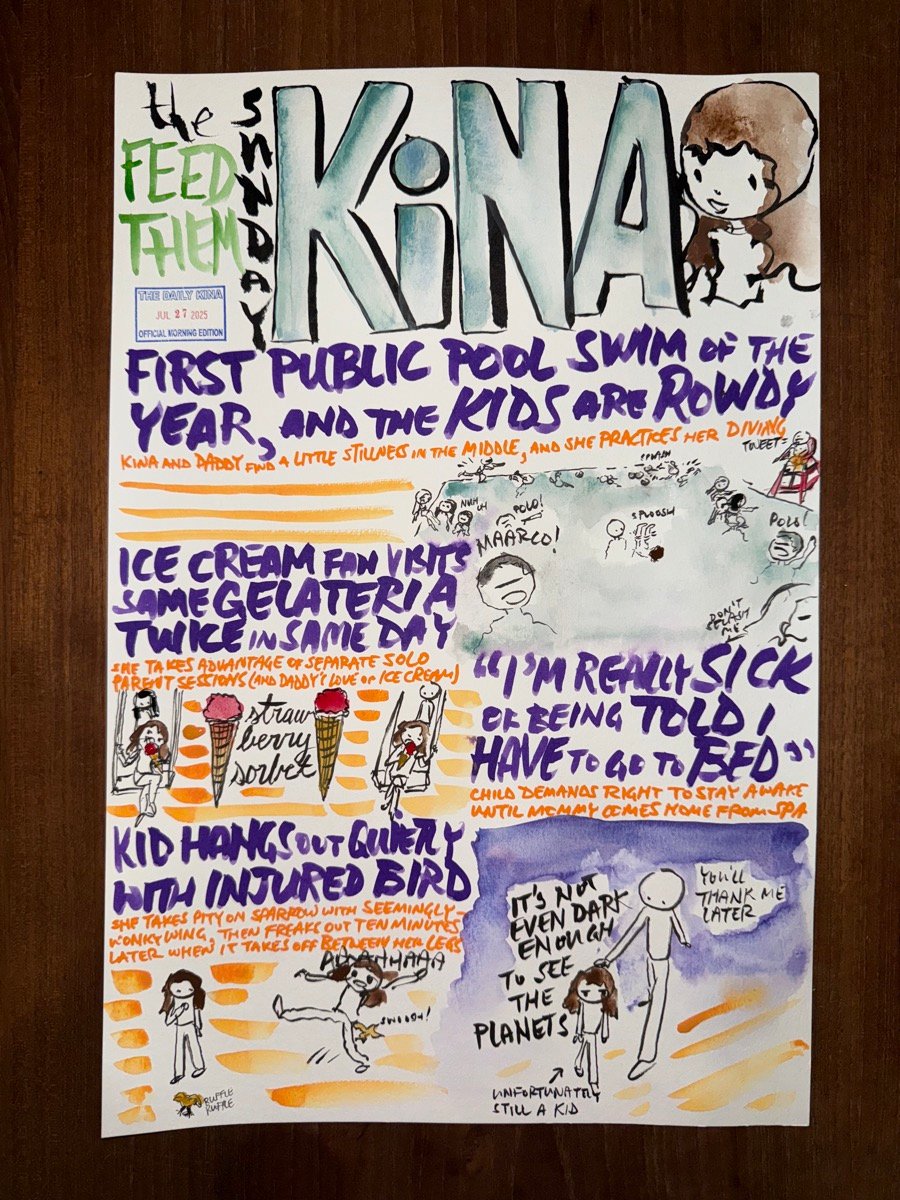 the
FEED
THEM
SUNDAY
KiNA
THE DAILY KINA
JUL 27 2025
OFFICIAL MORNING EDITION
FIRST PUBLIC POOL SWIM OF THE
YEAR, AND THE KIDS ARE ROWDY
KINA AND DADDY FIND A LITTLE STILLNESS IN THE MIDDLE, AND SHE PRACTICES HER DIVING
TWEET
SPLASH
NUH
UH
POLO!
SPLOOSH
MAARCO!
POLO!
DON'T
SPLASH
ME
ICE CREAM FAN VISITS
SAME GELATERIA
TWICE IN SAME DAY
SHE TAKES ADVANTAGE OF SEPARATE SOLO
PARENT SESSIONS (AND DADDY'S LOVE OF ICE CREAM)
straw
berry
sorbet
"I'M REALLY SICK
OF BEING TOLD I
HAVE TO GO TO BED"
CHILD DEMANDS RIGHT TO STAY AWAKE
UNTIL MOMMY COMES HOME FROM SPA
KID HANGS OUT QUIETLY
WITH INJURED BIRD
SHE TAKES PITY ON SPARROW WITH SEEMINGLY-
WONKY WING, THEN FREAKS OUT TEN MINUTES
LATER WHEN IT TAKES OFF BETWEEN HER LEGS
SWOOSH!
RUFFLE
RUFFLE
IT'S NOT
EVEN DARK
ENOUGH
TO SEE
THE
PLANETS
YOU'LL
THANK ME
LATER
UNFORTUNATELY
STILL A KID